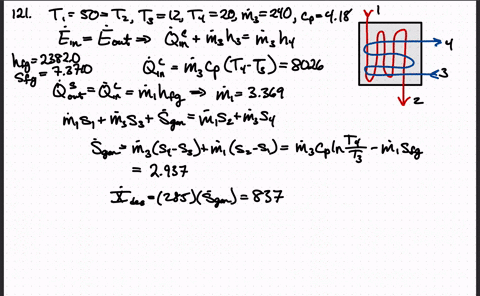 121. T₁ = 50 = T₂, T₃ = 12, T₄ = 20, ṁ₃ = 240, cₚ = 4.18
Ėin = Ėout ⇒ Q̇inᶜ + ṁ₃h₃ = ṁ₃h₄
hfg = 2382.0
Sfg = 7.3710
Q̇inᶜ = ṁ₃cₚ(T₄-T₃) = 8026
Q̇outˢ = Q̇inᶜ = ṁ₁hfg ⇒ ṁ₁ = 3.369
ṁ₁s₁ + ṁ₃s₃ + Ṡgen = ṁ₁s₂ + ṁ₃s₄
Ṡgen = ṁ₃(s₄-s₃) + ṁ₁(s₂-s₁) = ṁ₃cₚ ln T₄/T₃ - ṁ₁sfg
= 2.937
Ẋdes = (285)(Ṡgen) = 837
1
4
3
2